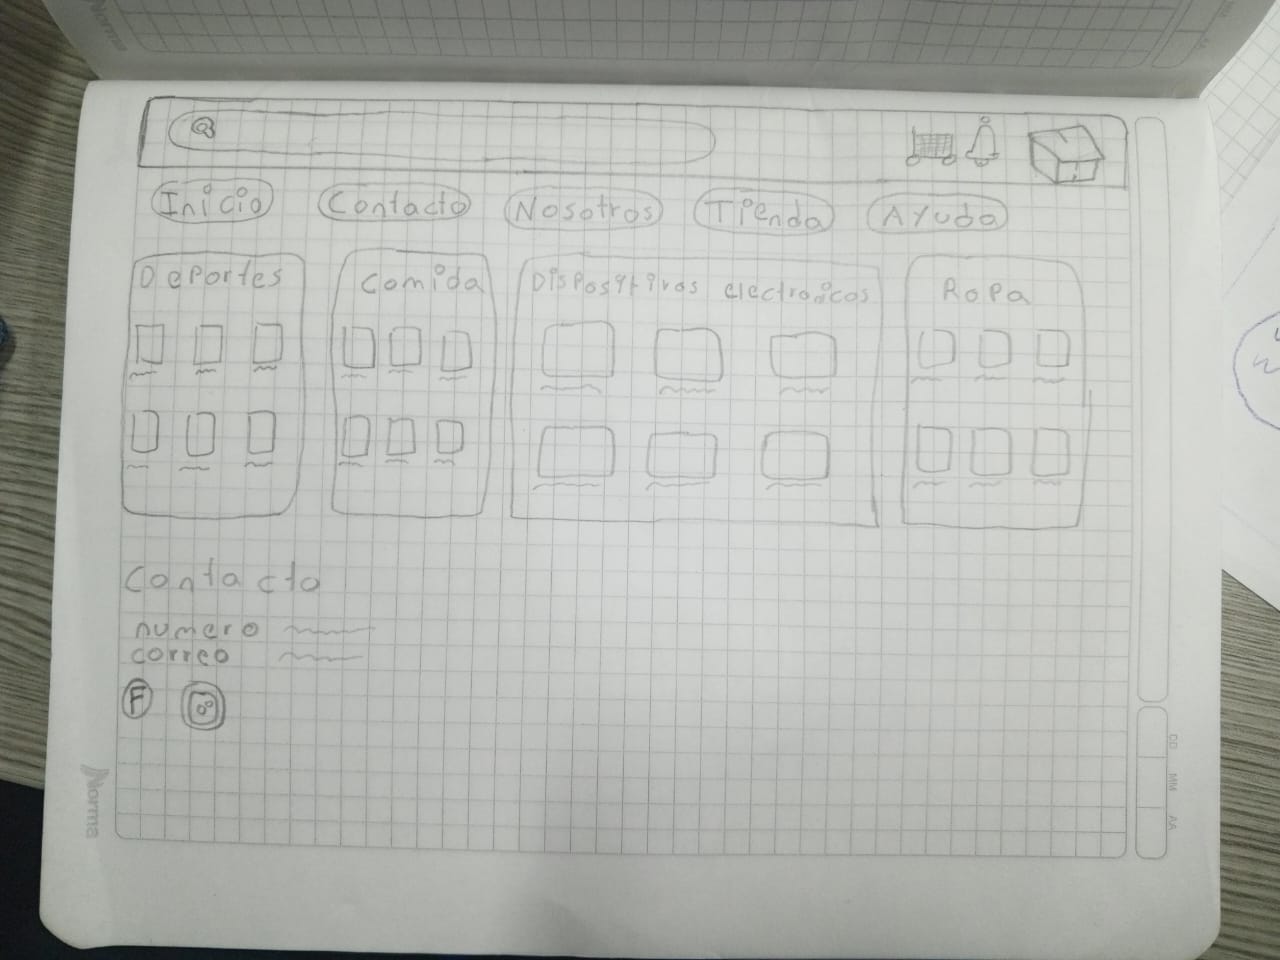 Inicio Contacto Nosotros Tienda Ayuda
Deportes Comida Dispositivos electronicos Ropa
Contacto
numero
correo
F
Norma
DD MM AA